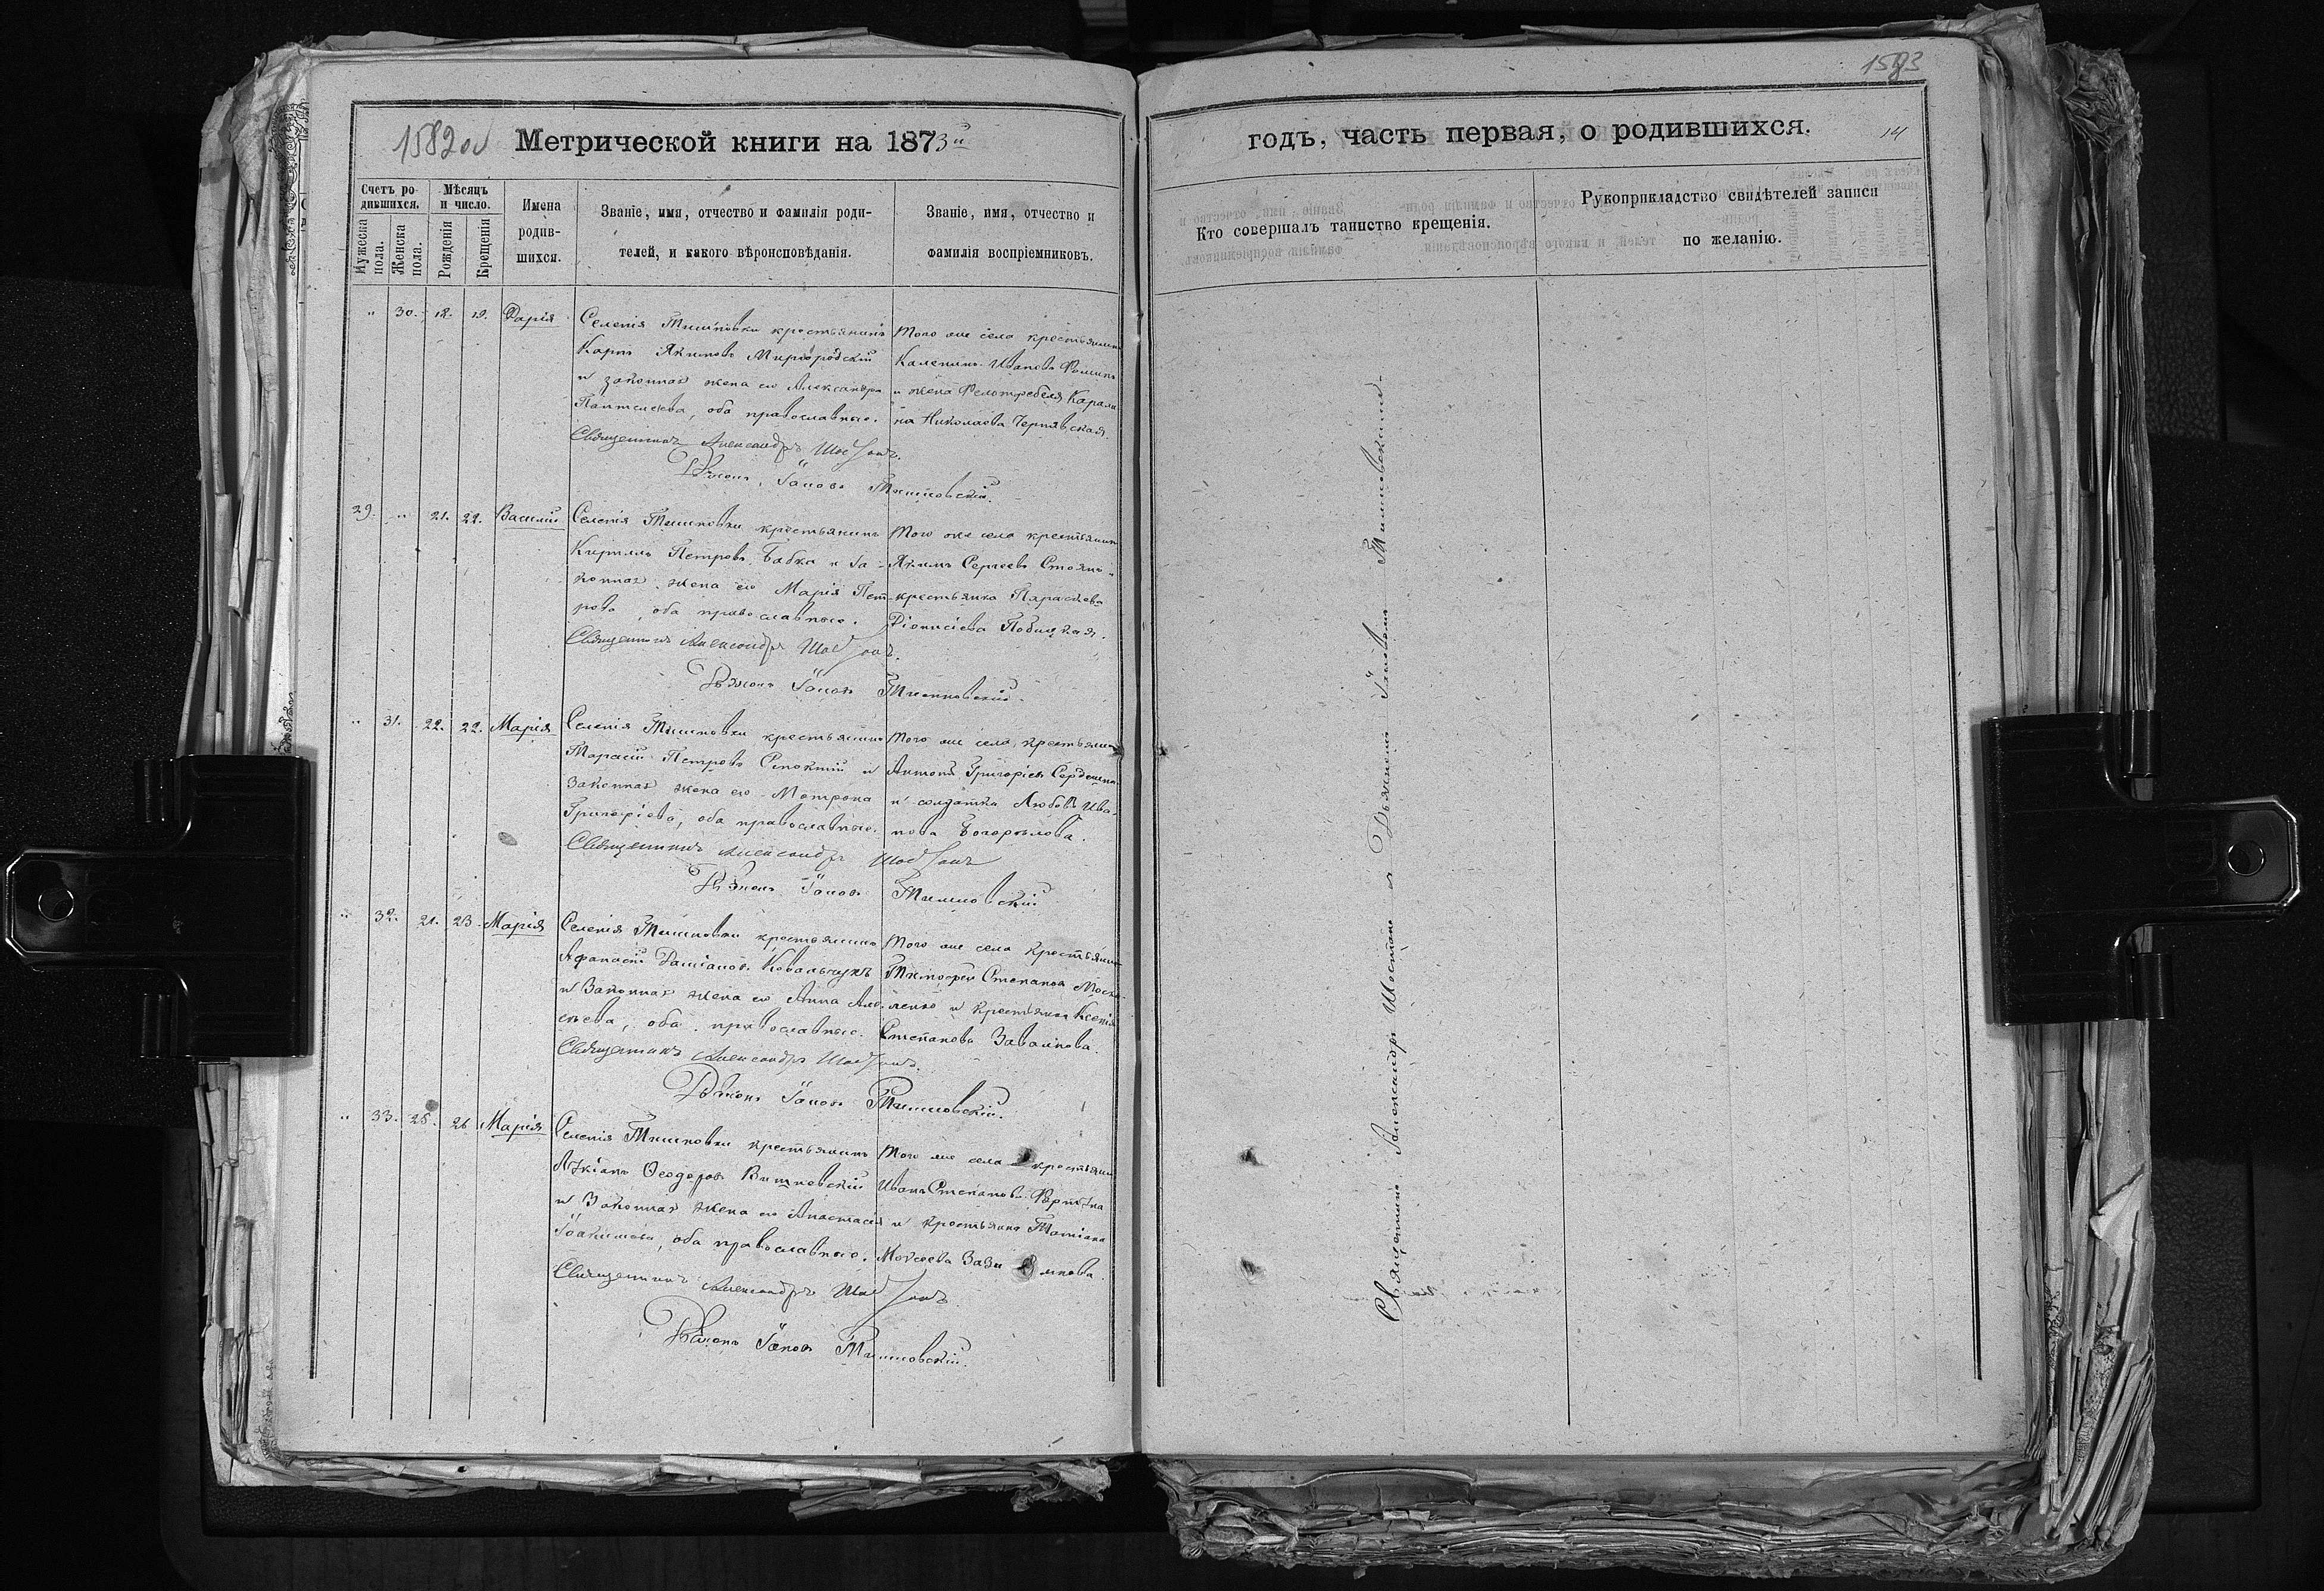 1582 об
Метрической книги на 1873й
Счетъ ро-
дившихся.
Мужеска
пола.
Женска
пола.
Мѣсяцъ
и число.
Рожденія
Крещенія
Имена
родив-
шихся.
Званіе, имя, отчество и фамилія роди-
телей, и какого вѣроисповѣданія.
Званіе, имя, отчество и
фамилія воспріемниковъ.
" 30. 18. 19. Дарія
Селенія Тишковки крестьянинъ
Карпъ Якимовъ Миргородскій
и законная жена его Александра
Пантелеева, оба православные.
Того же села крестьянинъ
Калениκъ Ивановъ Фоминъ
и жена Фелдфебеля Карали-
на Николаева Чернявская.
Священникъ Александръ Шостакъ.
Дьяконъ Іаковъ Тишковскій.
29. " 21. 22. Василій
Селенія Тишковки крестьянинъ
Кириллъ Петровъ Бабка и за-
конная жена его Марія Пет-
рова, оба православные.
Того же села крестьянинъ
Якимъ Сергеевъ Стоянъ и
крестьянка Параскева
Діонисіева
Священникъ Александръ Шостакъ.
Дьяконъ Іаковъ Тишковскій.
" 31. 22. 22. Марія
Селенія Тишковки крестьянинъ
Тарасій Петровъ и
законная жена его Матрона
Григоріева, оба православные.
Того же села крестьянинъ
Антонъ Григоріевъ
и солдатка Любовь Ива-
нова
Священникъ Александръ Шостакъ
Дьяконъ Іаковъ Тишковскій
" 32. 21. 23. Марія
Селенія Тишковки крестьянинъ
Афанасій Даміановъ Ковальчукъ
и законная жена его Анна Але-
ѣева, оба православные.
Того же села крестьянинъ
Тимофей Степановъ Моска-
ленко и крестьянка Ксенія
Степанова
Священникъ Александръ Шостакъ.
Дьяконъ Іаковъ Тишковскій.
" 33. 25. 26 Марія
Селенія Тишковки крестьянинъ
Лукіанъ Ѳеодоровъ Витковскій
и законная жена его Анастасія
Іоакимова, оба православные.
Того же села крестьянинъ
Иванъ Степановъ
и крестьянка Татіана
Моисеева
Священникъ Александръ Шостакъ
Дьяконъ Іаковъ Тишковскій.
1583
годъ, часть первая, о родившихся.
14
Кто совершалъ таинство крещенія.
Рукоприкладство свидѣтелей записи
по желанію.
Священникъ Александръ Шостакъ съ Дьякономъ Іаковомъ Тишковскимъ.